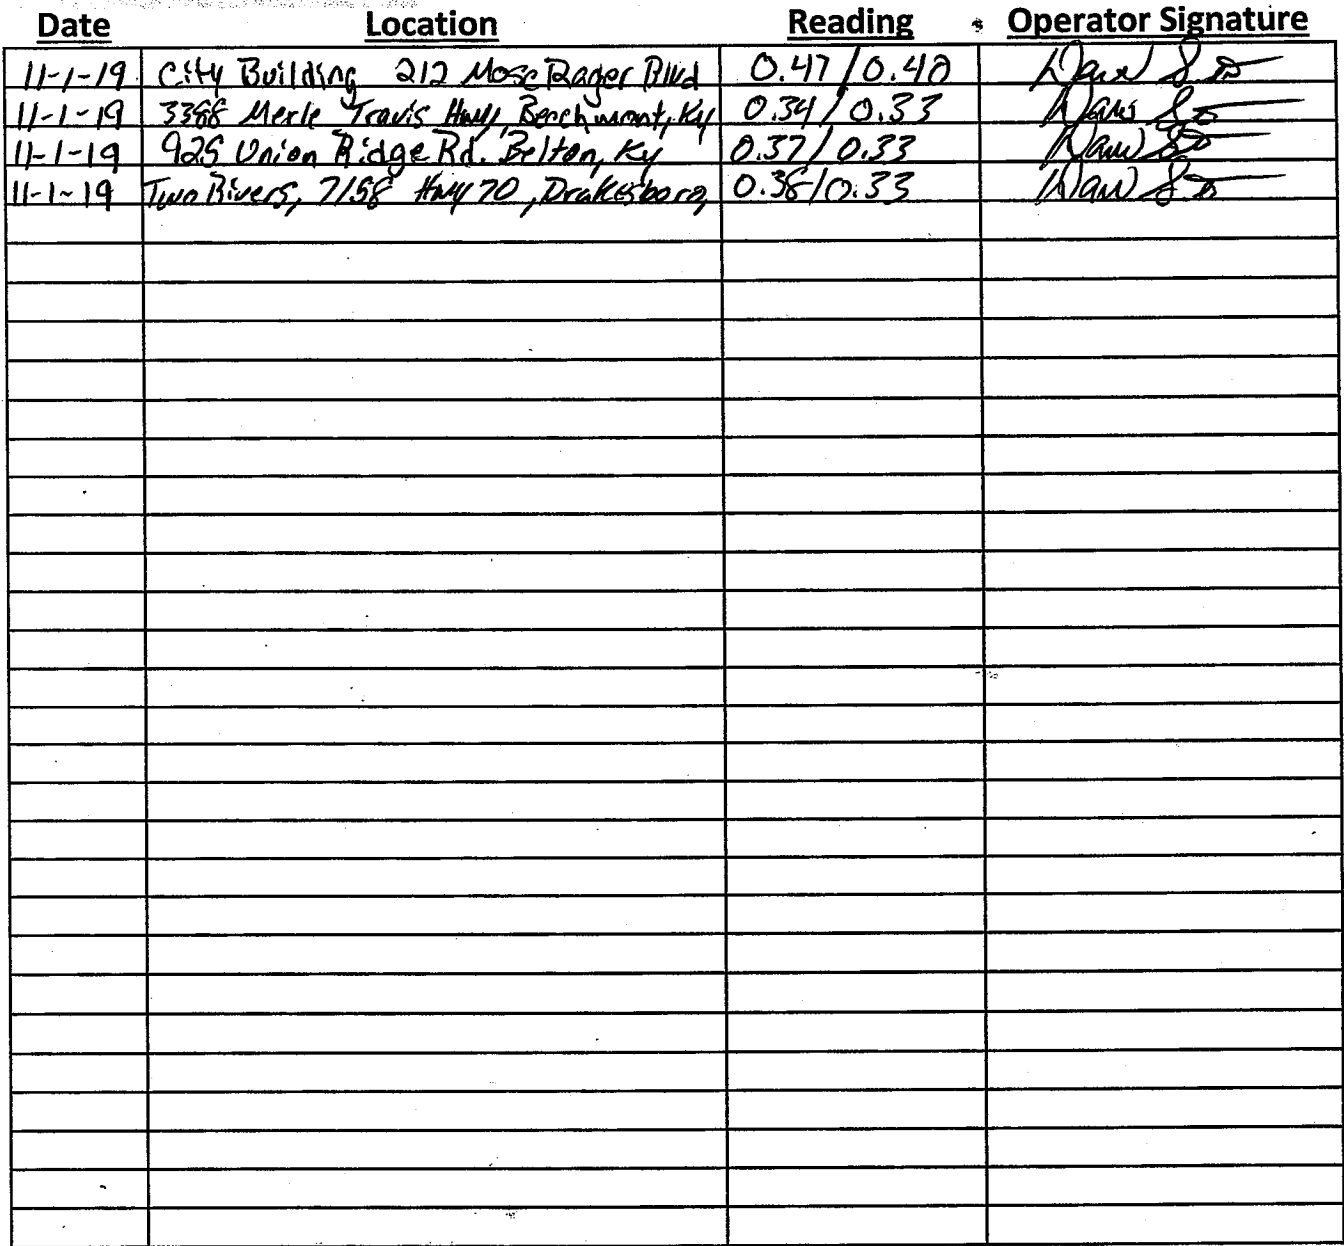 Date Location Reading Operator Signature
11-1-19 City Building 212 Mose Rager Blvd 0.47/0.40
11-1-19 3388 Merle Travis Hwy, Beechmont, Ky 0.34/0.33
11-1-19 925 Union Ridge Rd. Belton, Ky 0.37/0.33
11-1-19 Two Rivers, 7158 Hwy 70, Drakesboro, 0.38/0.33